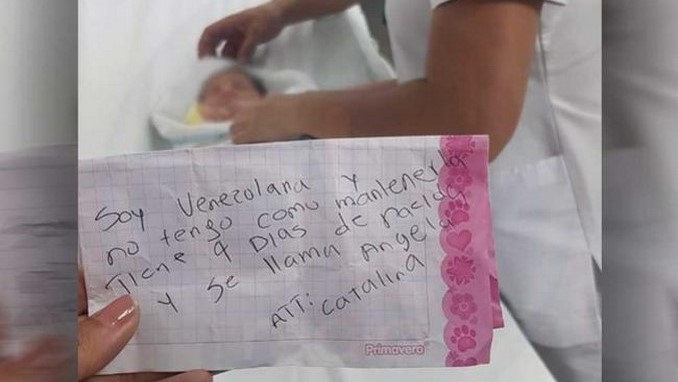 Soy Venezolana y
no tengo como mantenerla
Tiene 9 Dias de nacida
y se llama Angela
ATT: Catalina
Primavera